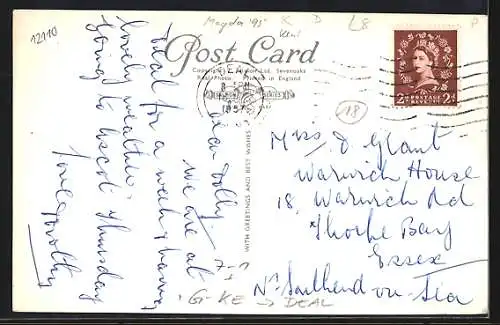 12110
Magda 95
K D
L8
P
Post Card
Real Photo Printed in England
DEAL
PM
1957
POSTAGE
REVENUE
2D 2D
18
WITH GREETINGS AND BEST WISHES
Dear Dolly.
We are at
Deal for a week & having
lovely weather.
Going to Ascot Thursday
Love Dorothy
Mrs D. Grant
Warwick House
18, Warwick Rd
Thorpe Bay
Essex
Nr Southend-on-Sea
GI-KE → DEAL